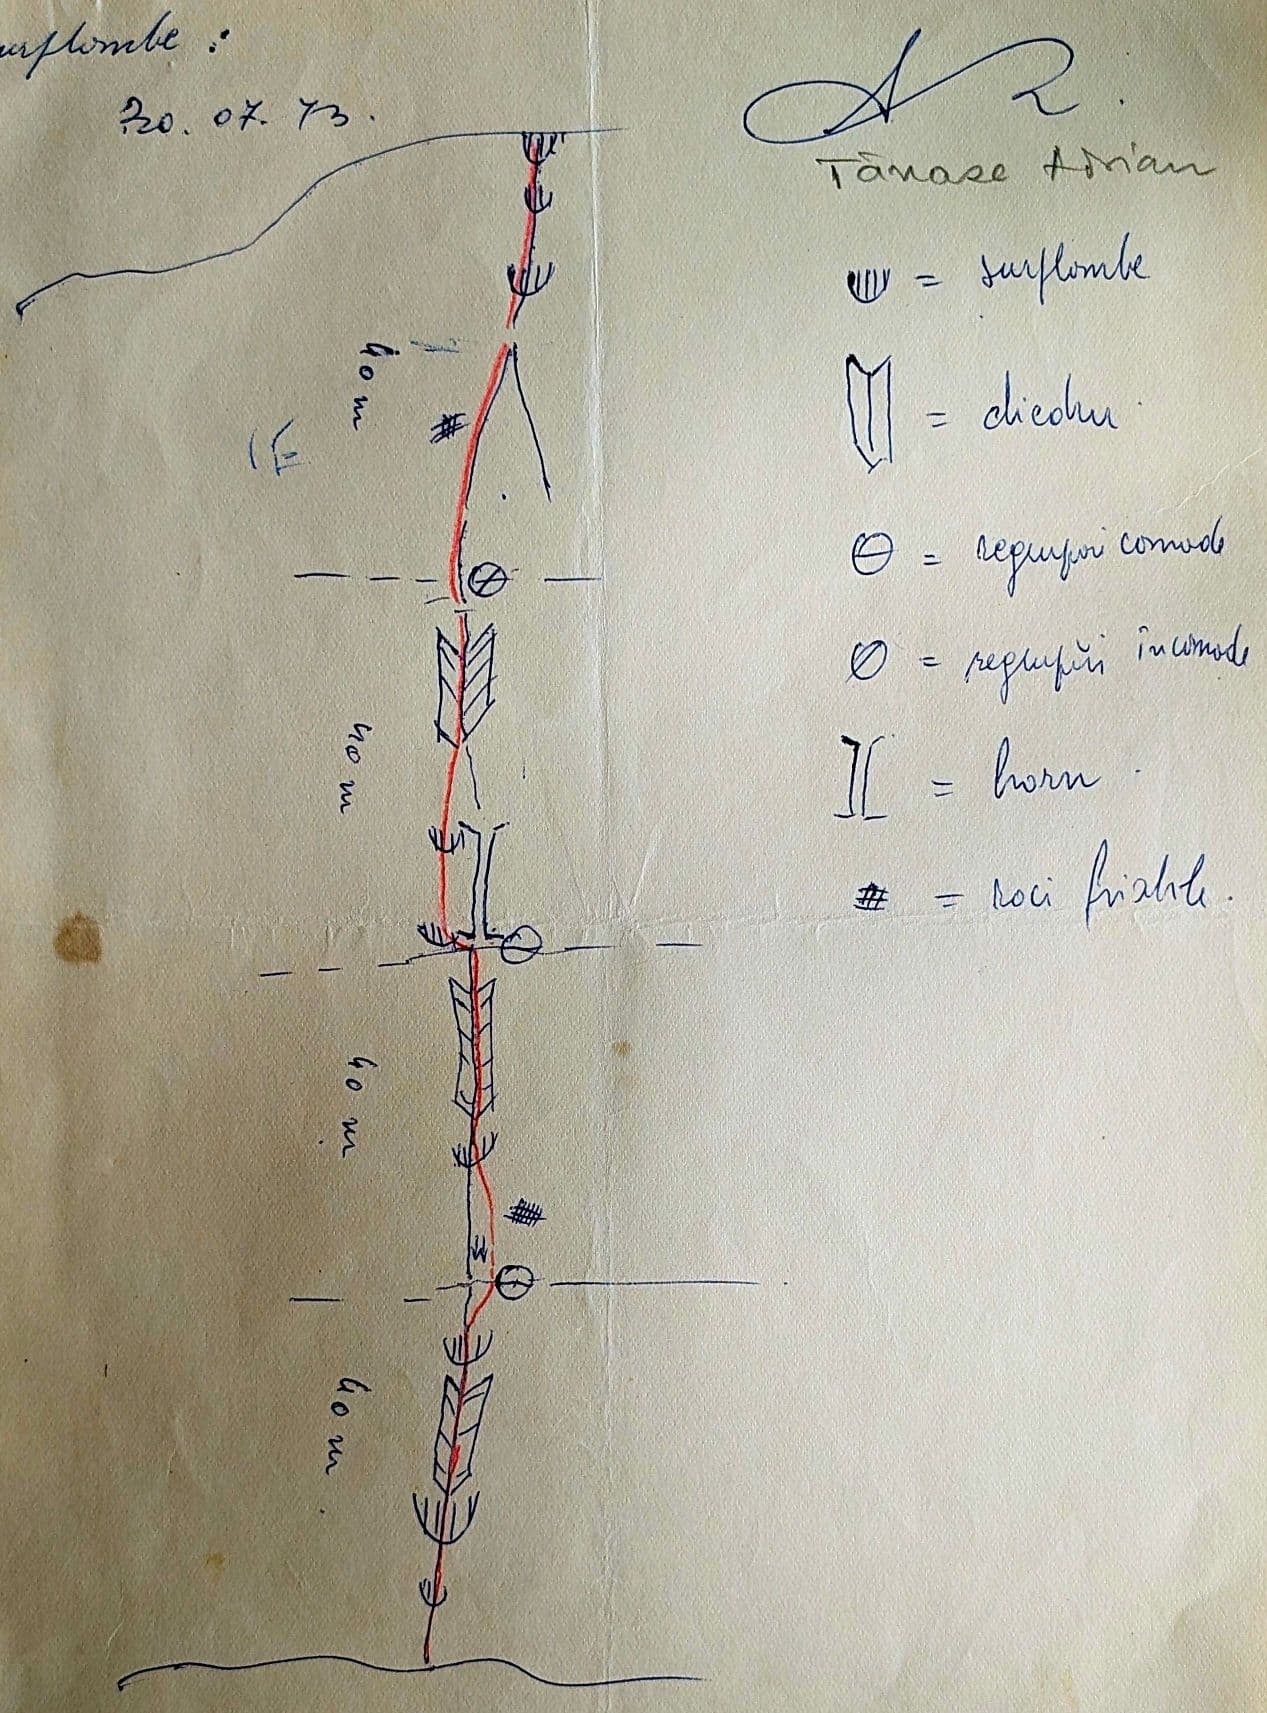 surflombe :
30. 07. 73.
Tănase Adrian
= surflombe
40 m
= diedru
= regrupări comode
= regrupări incomode
40 m
= horn
= roci friabile.
40 m
40 m